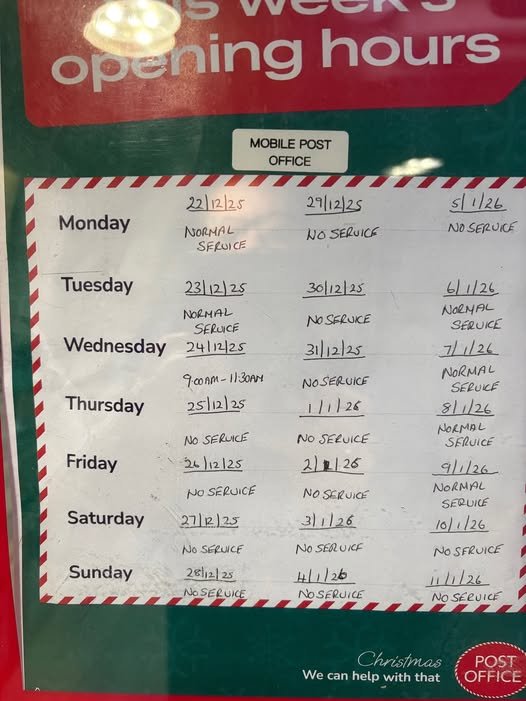 this week's
opening hours
MOBILE POST
OFFICE
Monday
22/12/25
NORMAL
SERVICE
29/12/25
NO SERVICE
5/1/26
NO SERVICE
Tuesday
23/12/25
NORMAL
SERVICE
30/12/25
NO SERVICE
6/1/26
NORMAL
SERVICE
Wednesday
24/12/25
9:00AM-11:30AM
31/12/25
NO SERVICE
7/1/26
NORMAL
SERVICE
Thursday
25/12/25
NO SERVICE
1/1/26
NO SERVICE
8/1/26
NORMAL
SERVICE
Friday
26/12/25
NO SERVICE
2/1/26
NO SERVICE
9/1/26
NORMAL
SERVICE
Saturday
27/12/25
NO SERVICE
3/1/26
NO SERVICE
10/1/26
NO SERVICE
Sunday
28/12/25
NO SERVICE
4/1/26
NO SERVICE
11/1/26
NO SERVICE
Christmas
We can help with that
POST
OFFICE